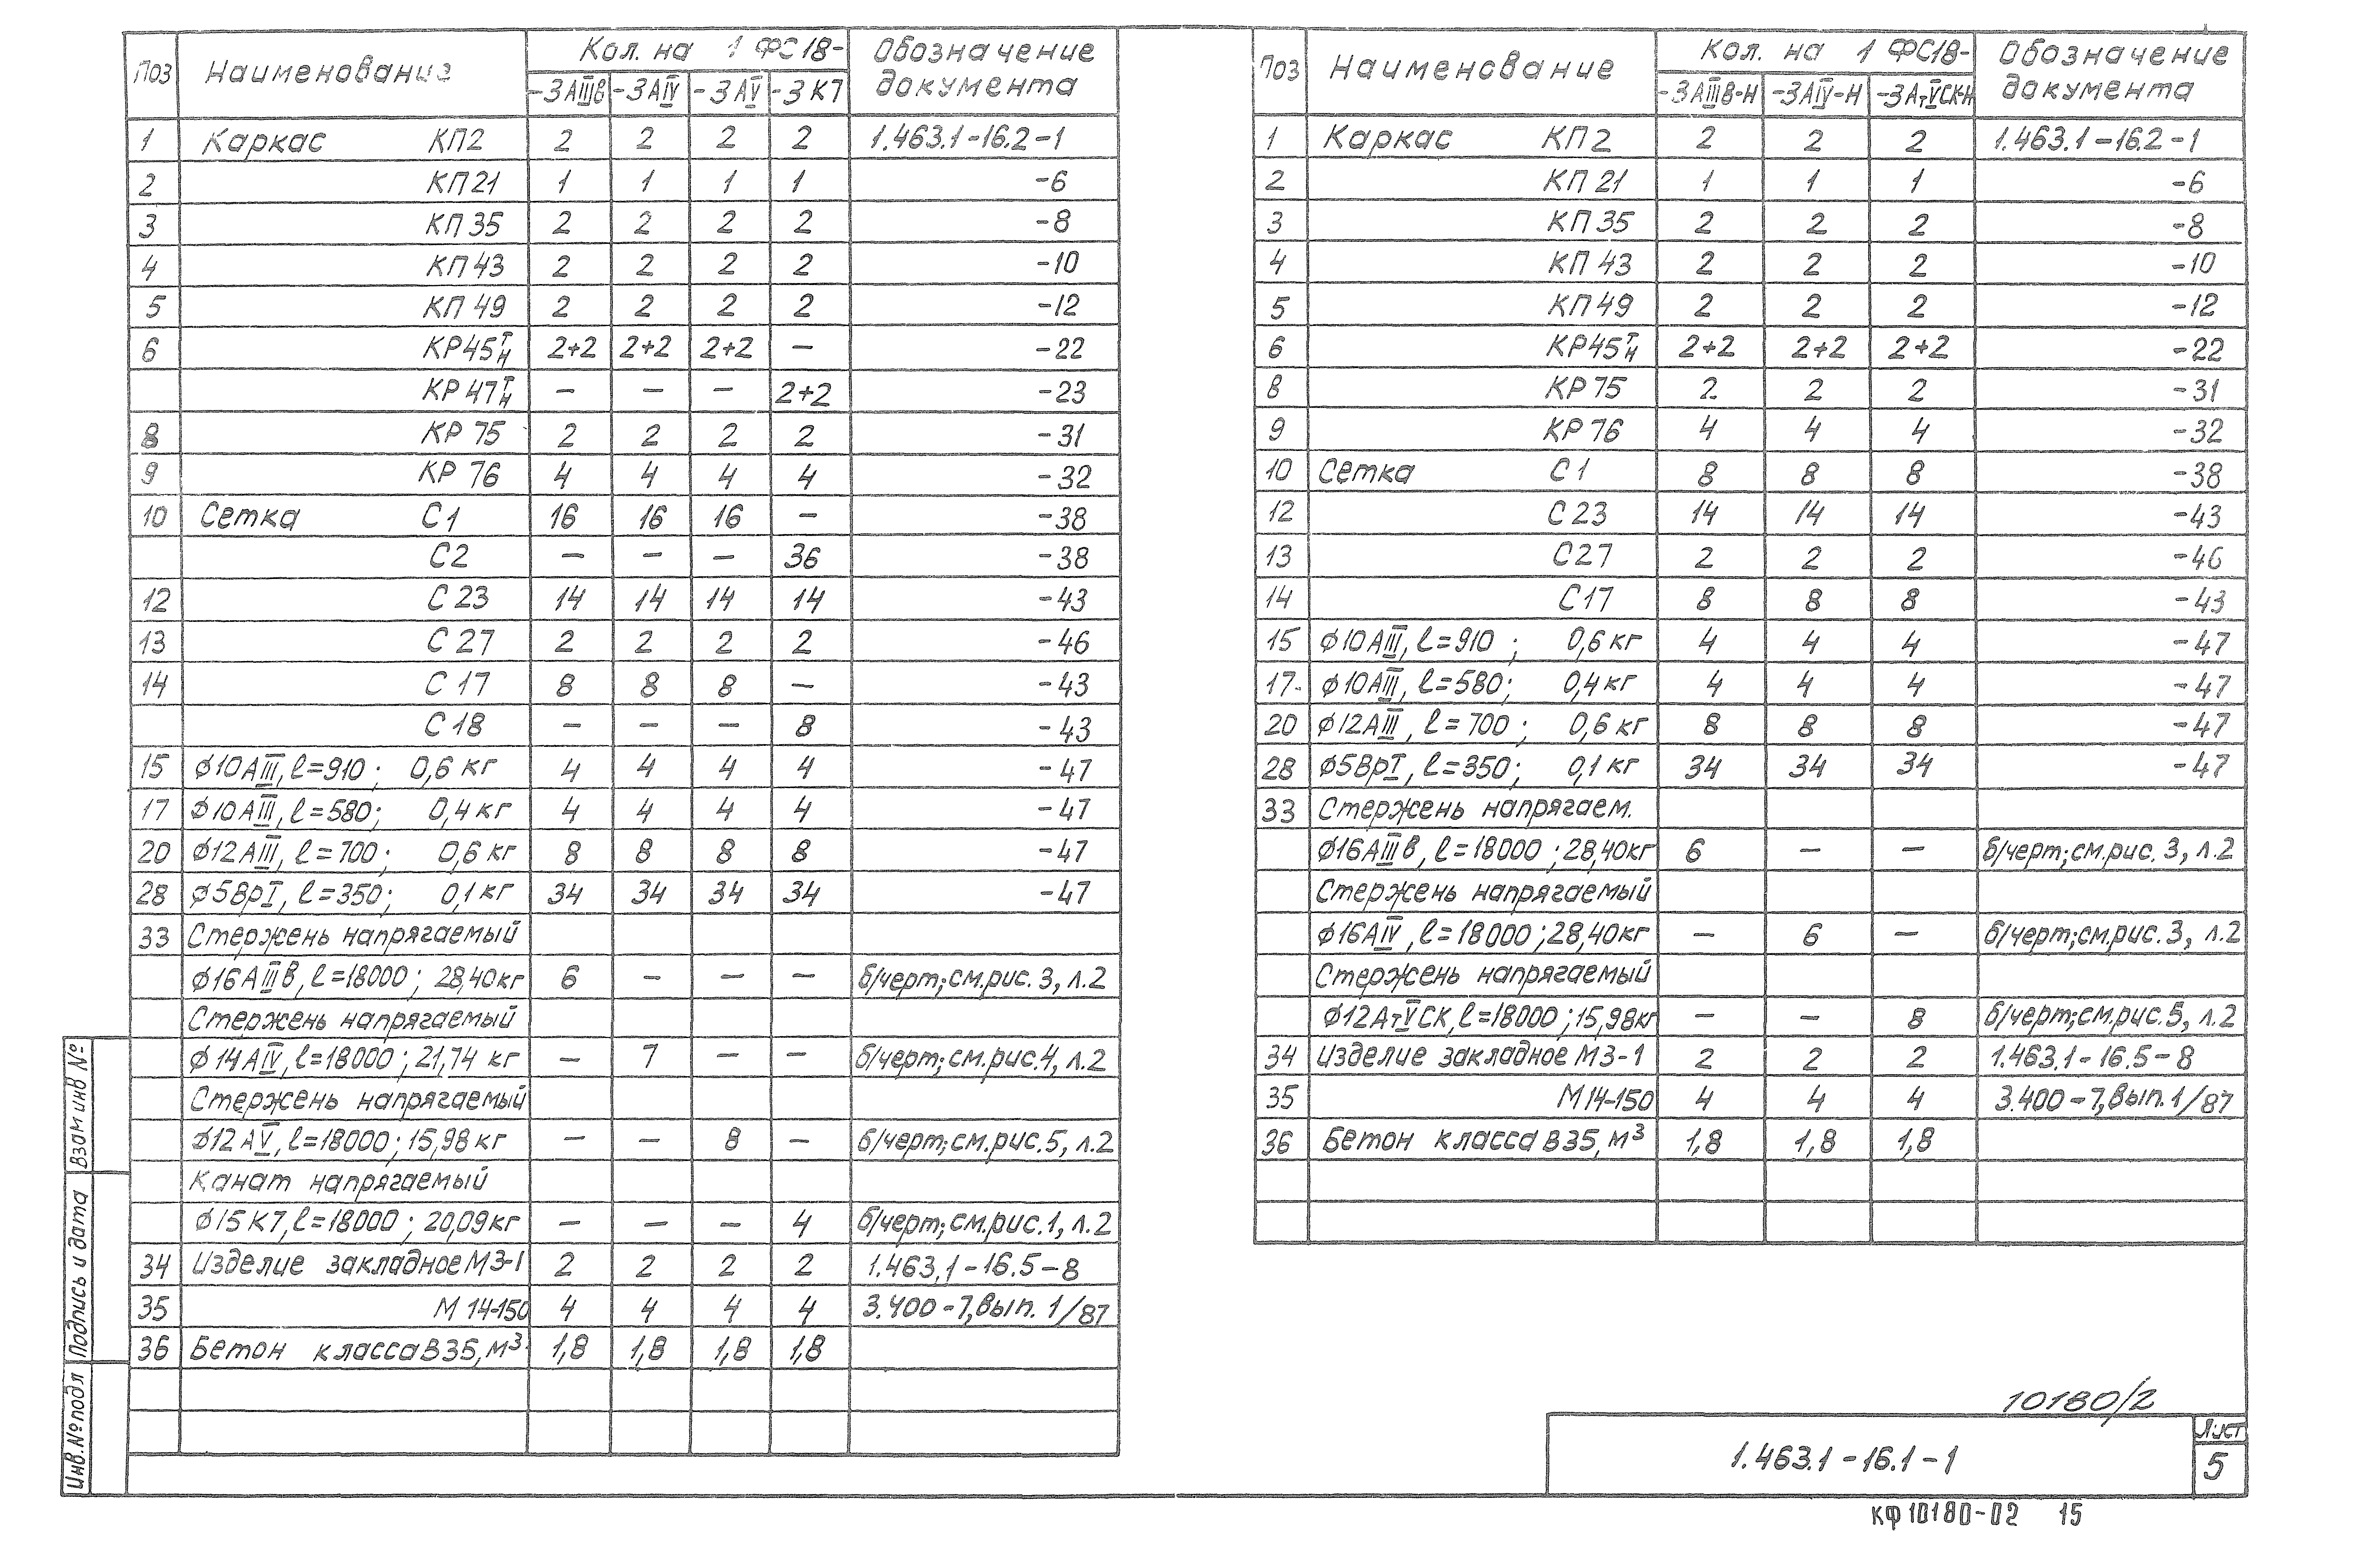 Поз Наименование Кол. на 1 ФС18- Обозначение документа
-3АIIIв -3АIV -3АV -3К7
1 Каркас КП2 2 2 2 2 1.463.1-16.2-1
2 КП21 1 1 1 1 -6
3 КП35 2 2 2 2 -8
4 КП43 2 2 2 2 -10
5 КП49 2 2 2 2 -12
6 КР45Т/Н 2+2 2+2 2+2 — -22
КР47Т/Н — — — 2+2 -23
8 КР75 2 2 2 2 -31
9 КР76 4 4 4 4 -32
10 Сетка С1 16 16 16 — -38
С2 — — — 36 -38
12 С23 14 14 14 14 -43
13 С27 2 2 2 2 -46
14 С17 8 8 8 — -43
С18 — — — 8 -43
15 ϕ10АIII, ℓ=910; 0,6 кг 4 4 4 4 -47
17 ϕ10АIII, ℓ=580; 0,4 кг 4 4 4 4 -47
20 ϕ12АIII, ℓ=700; 0,6 кг 8 8 8 8 -47
28 ϕ5ВрI, ℓ=350; 0,1 кг 34 34 34 34 -47
33 Стержень напрягаемый
ϕ16АIIIв, ℓ=18000; 28,40кг 6 — — — б/черт; см.рис.3, л.2
Стержень напрягаемый
ϕ14АIV, ℓ=18000; 21,74 кг — 7 — — б/черт; см.рис.4, л.2
Стержень напрягаемый
ϕ12АV, ℓ=18000; 15,98 кг — — 8 — б/черт; см.рис.5, л.2
Канат напрягаемый
ϕ15К7, ℓ=18000; 20,09кг — — — 4 б/черт; см.рис.1, л.2
34 Изделие закладное МЗ-1 2 2 2 2 1.463.1-16.5-8
35 М14-150 4 4 4 4 3.400-7, вып. 1/87
36 Бетон класса В35, м³ 1,8 1,8 1,8 1,8
Поз Наименование Кол. на 1 ФС18- Обозначение документа
-3АIIIв-Н -3АIV-Н -3АтVСК-Н
1 Каркас КП2 2 2 2 1.463.1-16.2-1
2 КП21 1 1 1 -6
3 КП35 2 2 2 -8
4 КП43 2 2 2 -10
5 КП49 2 2 2 -12
6 КР45Т/Н 2+2 2+2 2+2 -22
8 КР75 2 2 2 -31
9 КР76 4 4 4 -32
10 Сетка С1 8 8 8 -38
12 С23 14 14 14 -43
13 С27 2 2 2 -46
14 С17 8 8 8 -43
15 ϕ10АIII, ℓ=910; 0,6 кг 4 4 4 -47
17 ϕ10АIII, ℓ=580; 0,4 кг 4 4 4 -47
20 ϕ12АIII, ℓ=700; 0,6 кг 8 8 8 -47
28 ϕ5ВрI, ℓ=350; 0,1 кг 34 34 34 -47
33 Стержень напрягаем.
ϕ16АIIIв, ℓ=18000; 28,40кг 6 — — б/черт; см.рис. 3, л.2
Стержень напрягаемый
ϕ16АIV, ℓ=18000; 28,40кг — 6 — б/черт; см.рис.3, л.2
Стержень напрягаемый
ϕ12АтVСК, ℓ=18000; 15,98кг — — 8 б/черт; см.рис.5, л.2
34 Изделие закладное МЗ-1 2 2 2 1.463.1-16.5-8
35 М14-150 4 4 4 3.400-7, вып. 1/87
36 Бетон класса В35, м³ 1,8 1,8 1,8
Инв.№ подл Подпись и дата Взам инв №
10180/2
1.463.1-16.1-1
Лист
5
кф10180-02 15